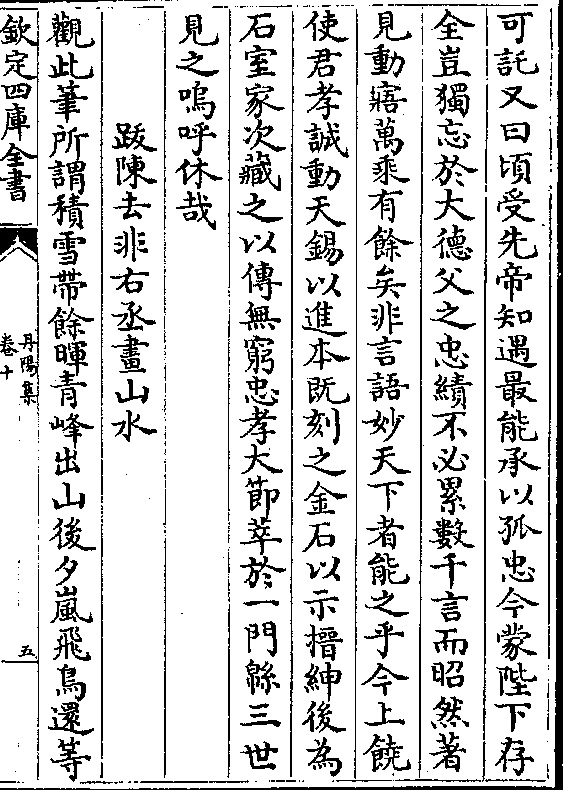 可託又曰頃受先帝知遇最能承以孤忠今蒙陛下存
全豈獨忘於大德父之忠績不必累數千言而昭然著
見動寤萬乘有餘矣非言語妙天下者能之乎今上饒
使君孝誠動天錫以進本既刻之金石以示搢紳後為
石室家次藏之以傳無窮忠孝大節萃於一門緜三世
見之嗚呼休哉
跋陳去非右丞畫山水
觀此筆所謂積雪帶餘暉青峰出山後夕嵐飛鳥還等
欽定四庫全書
丹陽集
卷十
五